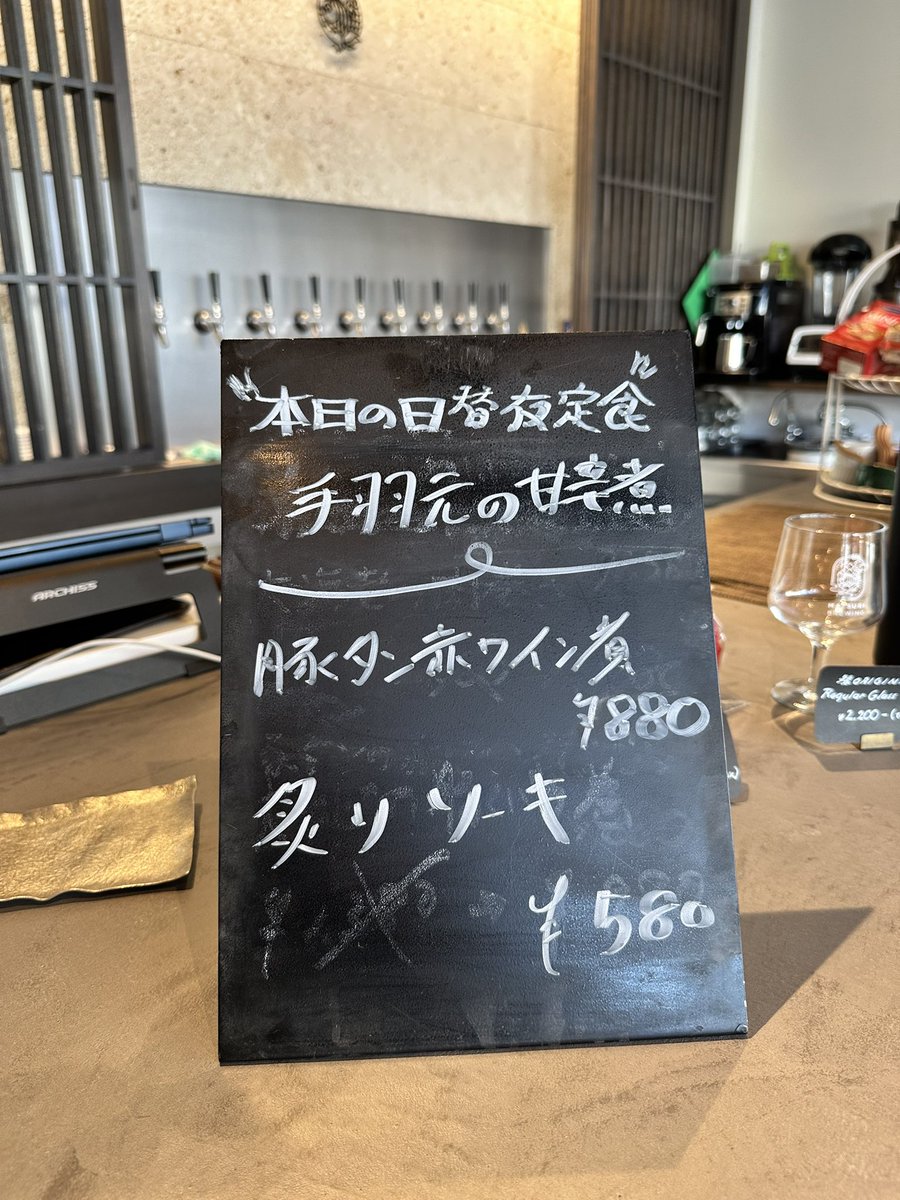 "本日の日替夜定食"
手羽元の甘辛煮
豚タン赤ワイン煮
¥880
炙りソーキ
¥580
ARCHISS
Regular Glass
¥2,200-